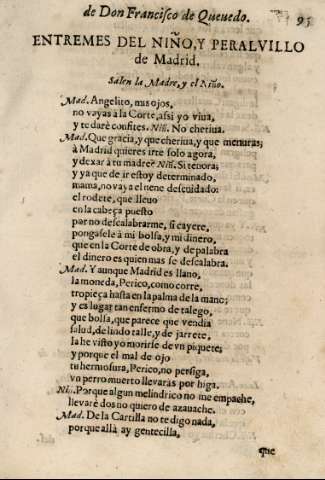 de Don Francisco de Quevedo.
95
ENTREMES DEL NIÑO, Y PERALVILLO
de Madrid.
Salen la Madre, y el Niño.
Mad. Angelito, mis ojos,
no vayas à la Corte, assi yo viua,
y te darè confites. Niñ. No cheriua.
Mad. Que gracia, y que cheriua, y que menuras;
à Madrid quieres irte solo agora,
y dexar à tu madre? Niñ. Si tenora;
y ya que de ir estoy determinado,
mama, no vaya el nene descuidado:
el rodete, que lleuo
en la cabeça puesto
par no descalabrarme, si cayere,
pongasele à mi bolsa, y mi dinero,
que en la Corte de obra, y de palabra
el dinero es quien mas se descalabra.
Mad. Y aunque Madrid es llano,
la moneda, Perico, como corre,
tropieça hasta en la palma de la mano;
y es lugar tan enfermo de talego,
que bolsa, que parece que vendia
salud, de lindo talle, y de jarrete,
la he visto yo morirse de vn piquete;
y porque el mal de ojo
tu hermosura, Perico, no persiga,
vn perro muerto lleuaràs por higa.
Niñ. Porque algun melindrico no me empache,
lleuarè dos no quiero de azauache.
Mad. De la Cartilla no te digo nada,
porque allà ay gentecilla,
que